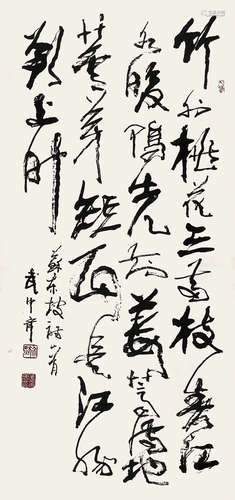 竹外桃花三兩枝春江
水暖鴨先知蔞蒿滿地
蘆芽短正是河豚
欲上时
蘇东坡詩一首
武中奇